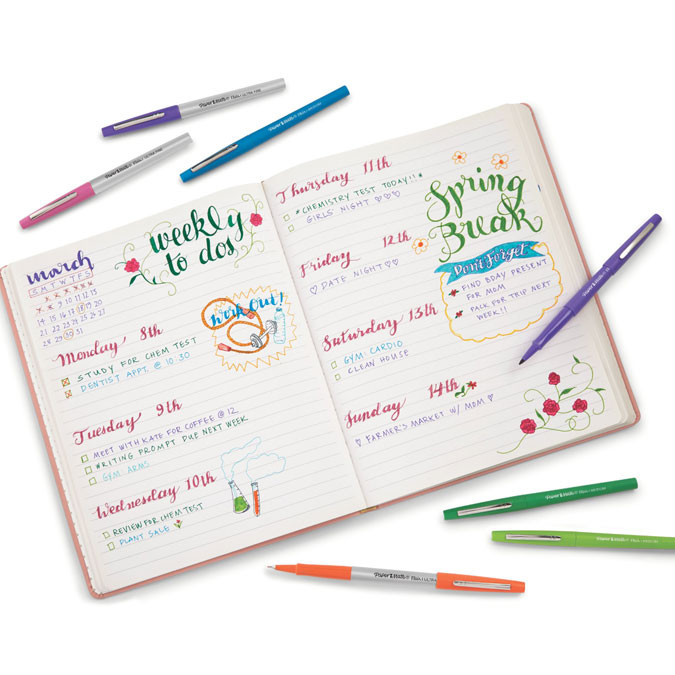 march
S M T W T F S
9 10 11 12 13
14 15 16 17 18 19 20
21 22 23 24 25 26 27
28 29 30 31
weekly
to dos
Monday 8th
STUDY FOR CHEM TEST
DENTIST APPT. @ 10:30
Work Out!
Tuesday 9th
MEET WITH KATE FOR COFFEE @ 12
*RITING PROMPT DUE NEXT WEEK
GYM ARMS
Wednesday 10th
REVIEW FOR CHEM TEST
PLANT SALE
Thursday 11th
*CHEMISTRY TEST TODAY!!*
GIRLS NIGHT ♡♡♡
Friday 12th
♡ DATE NIGHT ♡♡
Saturday 13th
GYM CARDIO
CLEAN HOUSE
Sunday 14th
♡ FARMER'S MARKET W/ MOM ♡
Spring
Break
Don't Forget
FIND BDAY PRESENT
FOR MOM
PACK FOR TRIP NEXT
WEEK!!
Paper Mate Flair ULTRA FINE
Paper Mate
Paper Mate Flair ULTRA FINE
Paper Mate
Paper Mate Flair
Paper Mate Flair
Paper Mate Flair